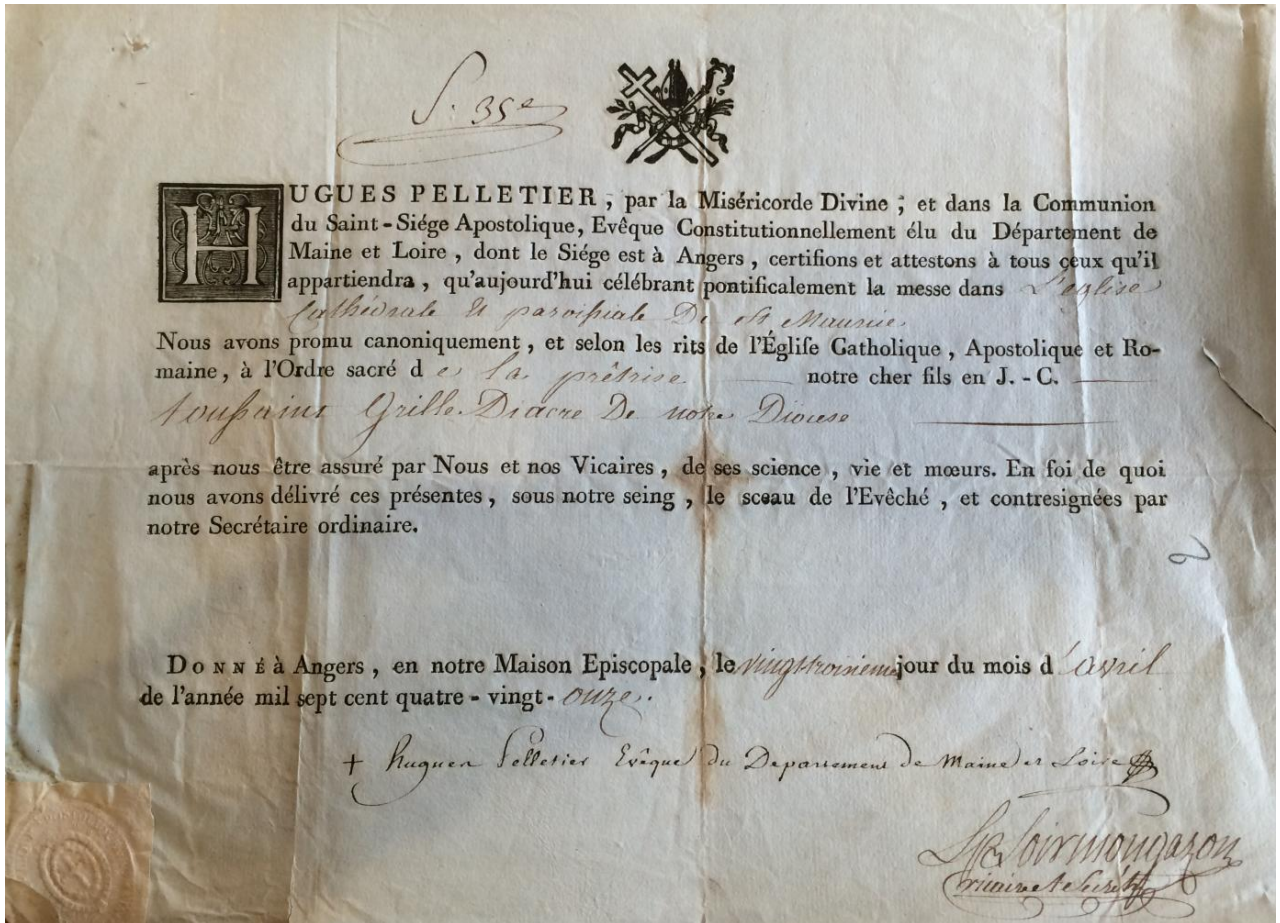 S. 35e
HUGUES PELLETIER, par la Miséricorde Divine ; et dans la Communion
du Saint-Siége Apostolique, Evêque Constitutionnellement élu du Département de
Maine et Loire, dont le Siége est à Angers, certifions et attestons à tous ceux qu'il
appartiendra, qu'aujourd'hui célébrant pontificalement la messe dans L'eglise
Cathédrale Et paroissiale De St Maurice
Nous avons promu canoniquement, et selon les rits de l'Églife Catholique, Apostolique et Ro-
maine, à l'Ordre sacré de la prêtrise notre cher fils en J.-C.
toussaint Grille Diacre De notre Diocese
après nous être assuré par Nous et nos Vicaires, de ses science, vie et mœurs. En foi de quoi
nous avons délivré ces présentes, sous notre seing, le sceau de l'Evêché, et contresignées par
notre Secrétaire ordinaire.
2
DONNÉ à Angers, en notre Maison Episcopale, le vingt troisieme jour du mois d'avril
de l'année mil sept cent quatre-vingt-onze.
+ hugues Pelletier Evêque du Departement de Maine et Loire
Soirmongazon
vicaire et Secrét